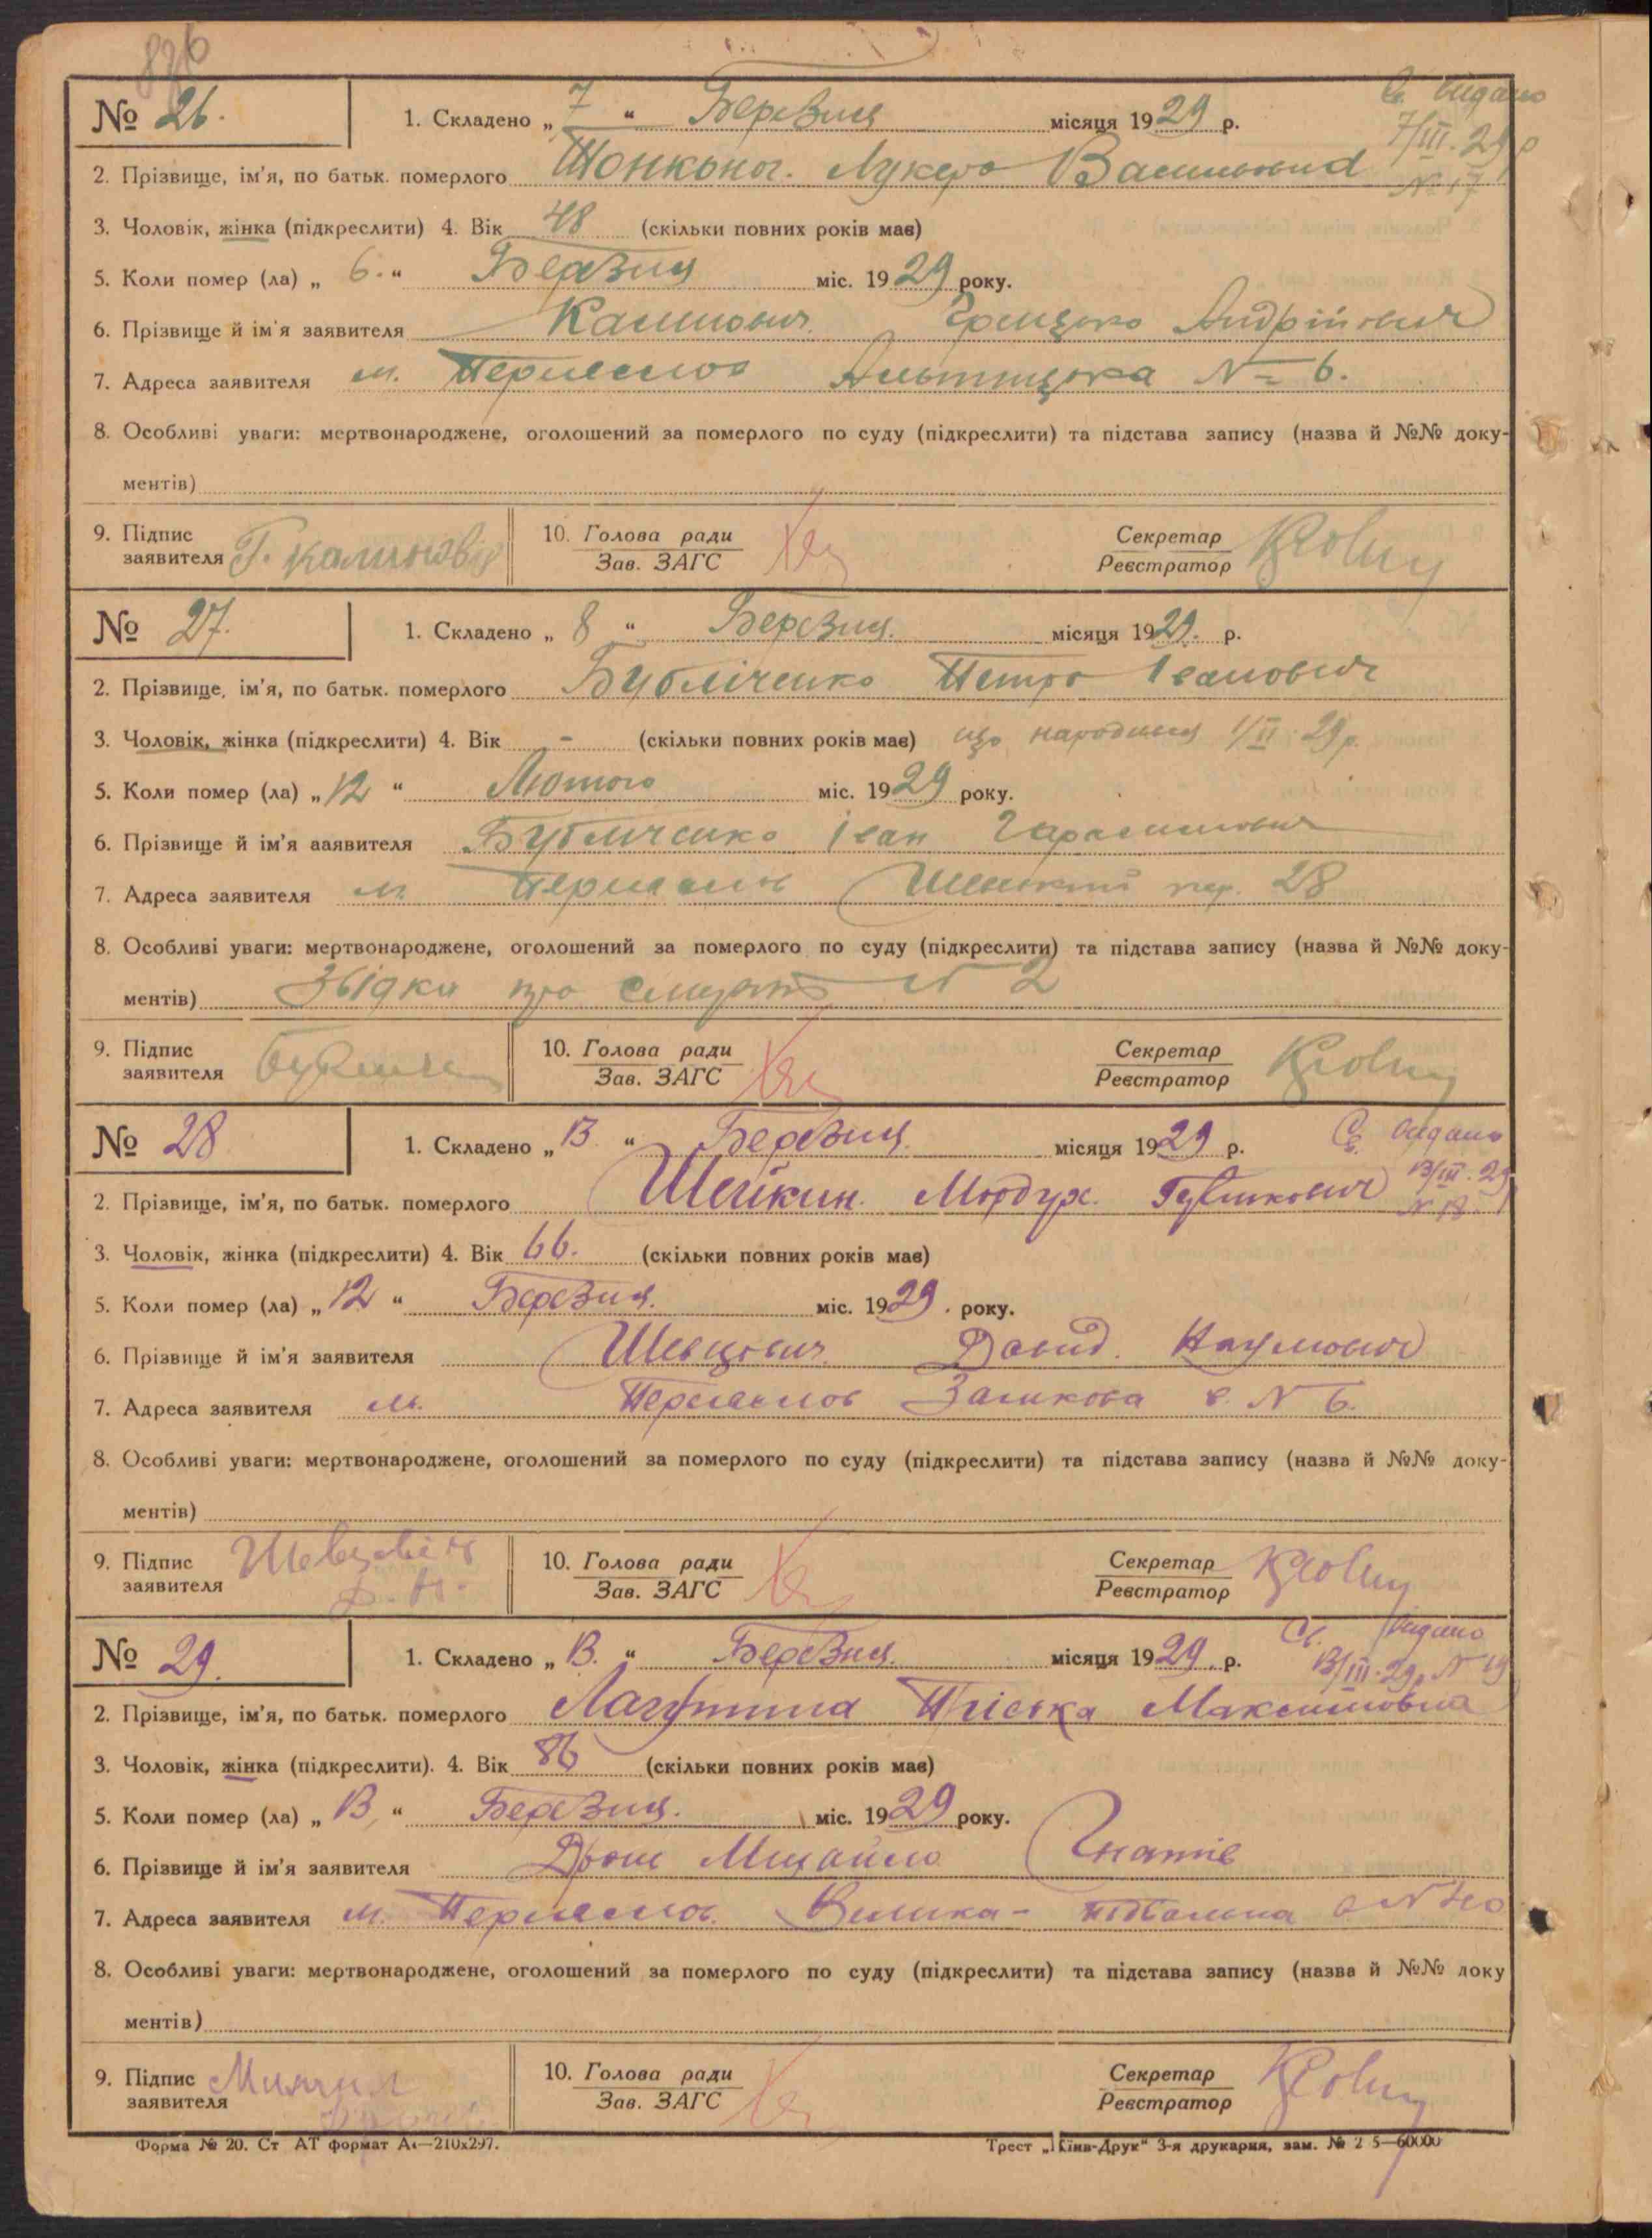 826
№ 26. 1. Складено „ 7 “ Березня місяця 1929 р. Св. видано
7/III. 29 р
2. Прізвище, ім'я, по батьк. померлого № 17
3. Чоловік, жінка (підкреслити) 4. Вік 48 (скільки повних років має)
5. Коли помер (ла) „ 6. “ Березня міс. 1929 року.
6. Прізвище й ім'я заявителя Калинович Грицько Андрійович
7. Адреса заявителя м. Переяслов Альтицька № 6.
8. Особливі уваги: мертвонароджене, оголошений за померлого по суду (підкреслити) та підстава запису (назва й №№ доку-
ментів)
9. Підпис заявителя Г. Калинович 10. Голова ради Зав. ЗАГС Секретар Реєстратор
№ 27. 1. Складено „ 8 “ Березня. місяця 1929. р.
2. Прізвище, ім'я, по батьк. померлого Бубліченко Петро Іванович
3. Чоловік, жінка (підкреслити) 4. Вік - (скільки повних років має) що народився 1/II 29 р.
5. Коли помер (ла) „ 12 “ Лютого міс. 1929 року.
6. Прізвище й ім'я заявителя Бубличенко Іван Гарасимович
7. Адреса заявителя м. Переяслов пер. 28
8. Особливі уваги: мертвонароджене, оголошений за померлого по суду (підкреслити) та підстава запису (назва й №№ доку-
ментів) Звідка про смерть № 2
9. Підпис заявителя 10. Голова ради Зав. ЗАГС Секретар Реєстратор
№ 28 1. Складено „ 13 “ Березня. місяця 1929 р. Св. видано
13/III. 29
2. Прізвище, ім'я, по батьк. померлого Шейкин. Мордух. № 18.
3. Чоловік, жінка (підкреслити) 4. Вік 66. (скільки повних років має)
5. Коли помер (ла) „ 12 “ Березня. міс. 1929. року.
6. Прізвище й ім'я заявителя Шевцович Давид. Наумович
7. Адреса заявителя м. Переяслов б. № 6.
8. Особливі уваги: мертвонароджене, оголошений за померлого по суду (підкреслити) та підстава запису (назва й №№ доку-
ментів)
9. Підпис заявителя Шевцовіч Д. Н. 10. Голова ради Зав. ЗАГС Секретар Реєстратор
№ 29. 1. Складено „ 13. “ Березня. місяця 1929. р. Св. видано
13/III. 29 р № 19
2. Прізвище, ім'я, по батьк. померлого Лагутина Максимовна
3. Чоловік, жінка (підкреслити). 4. Вік 86 (скільки повних років має)
5. Коли помер (ла) „ 13 “ Березня. міс. 1929 року.
6. Прізвище й ім'я заявителя Михайло Гнатів
7. Адреса заявителя м. Переяслов. Велика- Підвальна № 40
8. Особливі уваги: мертвонароджене, оголошений за померлого по суду (підкреслити) та підстава запису (назва й №№ доку
ментів)
9. Підпис заявителя 10. Голова ради Зав. ЗАГС Секретар Реєстратор
Форма № 20. Ст АТ формат А4—210x297. Трест „Київ-Друк“ 3-я друкарня, зам. № 2 5—60000